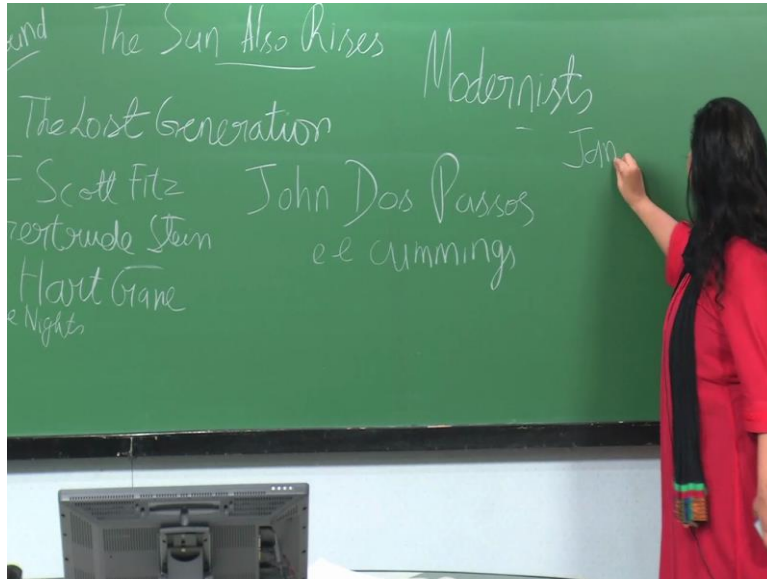 ound The Sun Also Rises
Modernists
The Lost Generation
Jam
F Scott Fitz
John Dos Passos
ertrude Stein
e e cummings
Hart Crane
e Nights